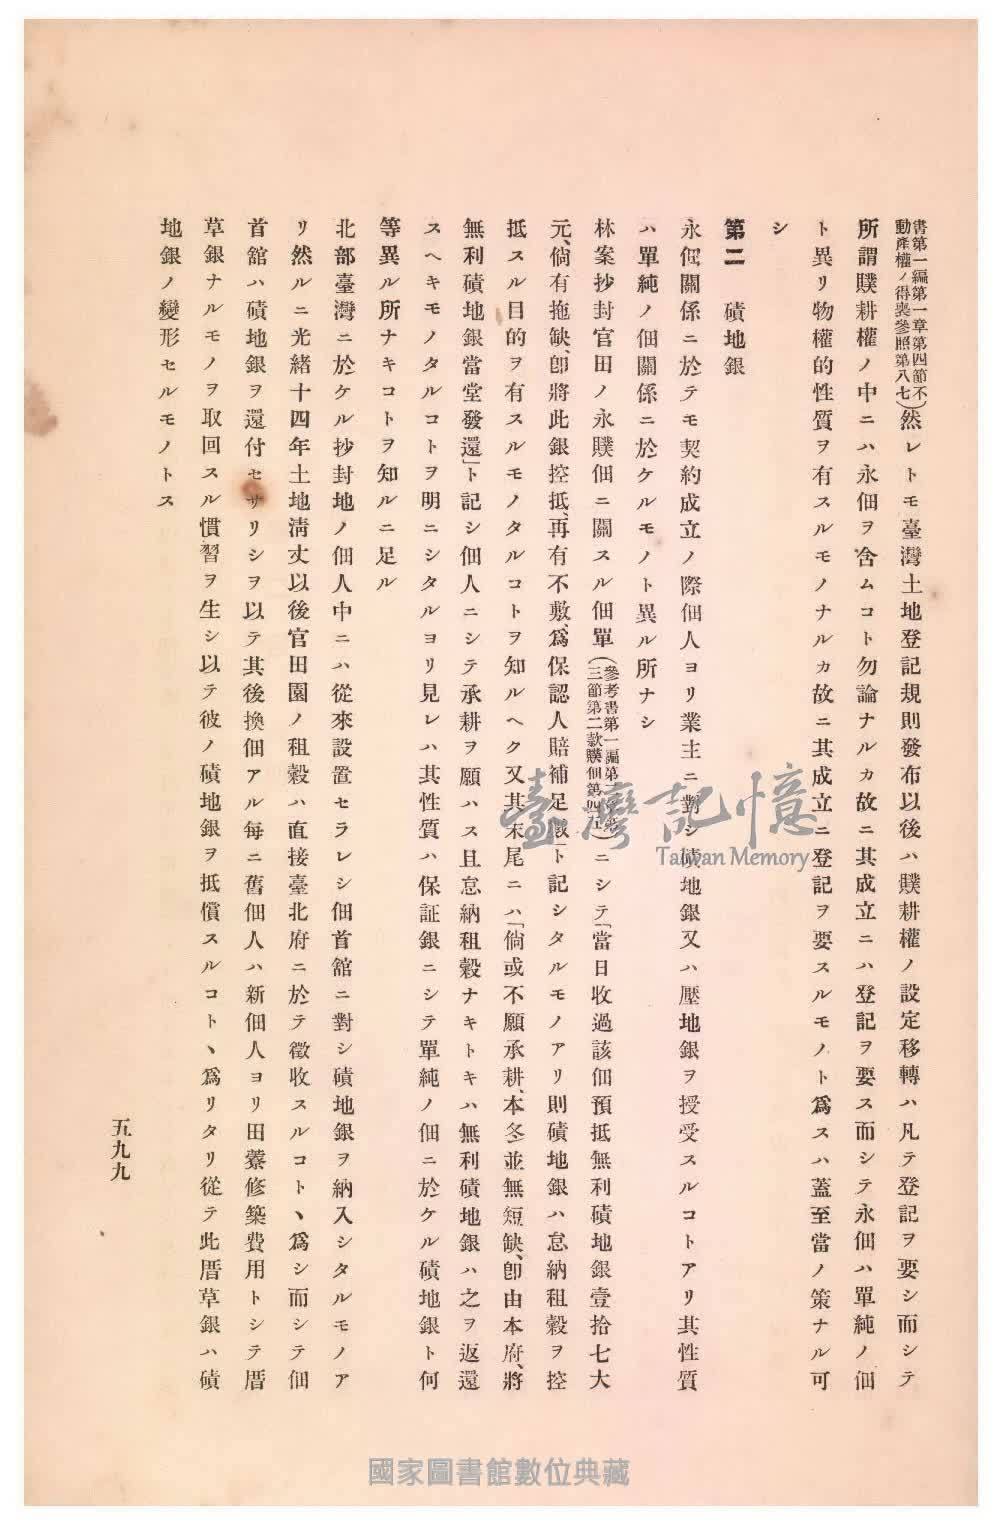 書第一編第一章第四節不
動產權ノ得喪參照第八七)然レトモ臺灣土地登記規則發布以後ハ贌耕權ノ設定移轉ハ凡テ登記ヲ要シ而シテ
所謂贌耕權ノ中ニハ永佃ヲ含ムコト勿論ナルカ故ニ其成立ニハ登記ヲ要ス而シテ永佃ハ單純ノ佃
ト異リ物權的性質ヲ有スルモノナルカ故ニ其成立ニ登記ヲ要スルモノト爲スハ蓋至當ノ策ナル可
シ
第二 磧地銀
永佃關係ニ於テモ契約成立ノ際佃人ヨリ業主ニ對シ磧地銀又ハ壓地銀ヲ授受スルコトアリ其性質
ハ單純ノ佃關係ニ於ケルモノト異ル所ナシ
林案抄封官田ノ永贌佃ニ關スル佃單(參考書第一編第
三節第二款贌佃第四)ニシテ「當日收過該佃預抵無利磧地銀壹拾七大
元、倘有拖缺、卽將此銀控抵、再有不敷、爲保認人賠補足」ト記シタルモノアリ則磧地銀ハ怠納租穀ヲ控
抵スル目的ヲ有スルモノタルコトヲ知ルヘク又其末尾ニハ「倘或不願承耕、本冬並無短缺、卽由本府、將
無利磧地銀當堂發還」ト記シ佃人ニシテ承耕ヲ願ハス且怠納租穀ナキトキハ無利磧地銀ハ之ヲ返還
スヘキモノタルコトヲ明ニシタルヨリ見レハ其性質ハ保証銀ニシテ單純ノ佃ニ於ケル磧地銀ト何
等異ル所ナキコトヲ知ルニ足ル
北部臺灣ニ於ケル抄封地ノ佃人中ニハ從來設置セラレシ佃首館ニ對シ磧地銀ヲ納入シタルモノア
リ然ルニ光緒十四年土地淸丈以後官田園ノ租穀ハ直接臺北府ニ於テ徵收スルコトヽ爲シ而シテ佃
首館ハ磧地銀ヲ還付セサリシヲ以テ其後換佃アル每ニ舊佃人ハ新佃人ヨリ田藔修築費用トシテ厝
草銀ナルモノヲ取回スル慣習ヲ生シ以テ彼ノ磧地銀ヲ抵償スルコトヽ爲リタリ從テ此厝草銀ハ磧
地銀ノ變形セルモノトス
五九九
臺灣記憶
Taiwan Memory
國家圖書館數位典藏